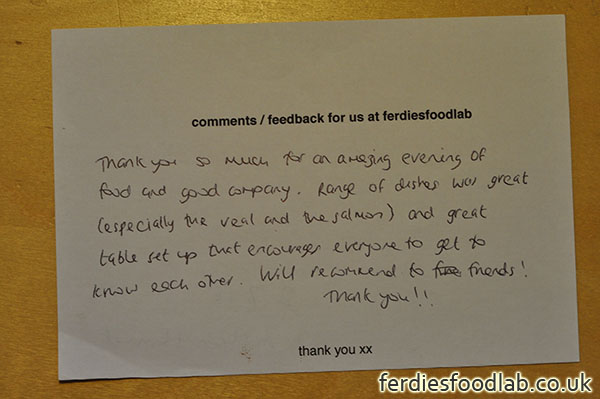 comments / feedback for us at ferdiesfoodlab
Thank you so much for an amazing evening of
food and good company. Range of dishes was great
(especially the veal and the salmon) and great
table set up that encourages everyone to get to
know each other. Will recommend to friends!
Thank you!!
thank you xx
ferdiesfoodlab.co.uk